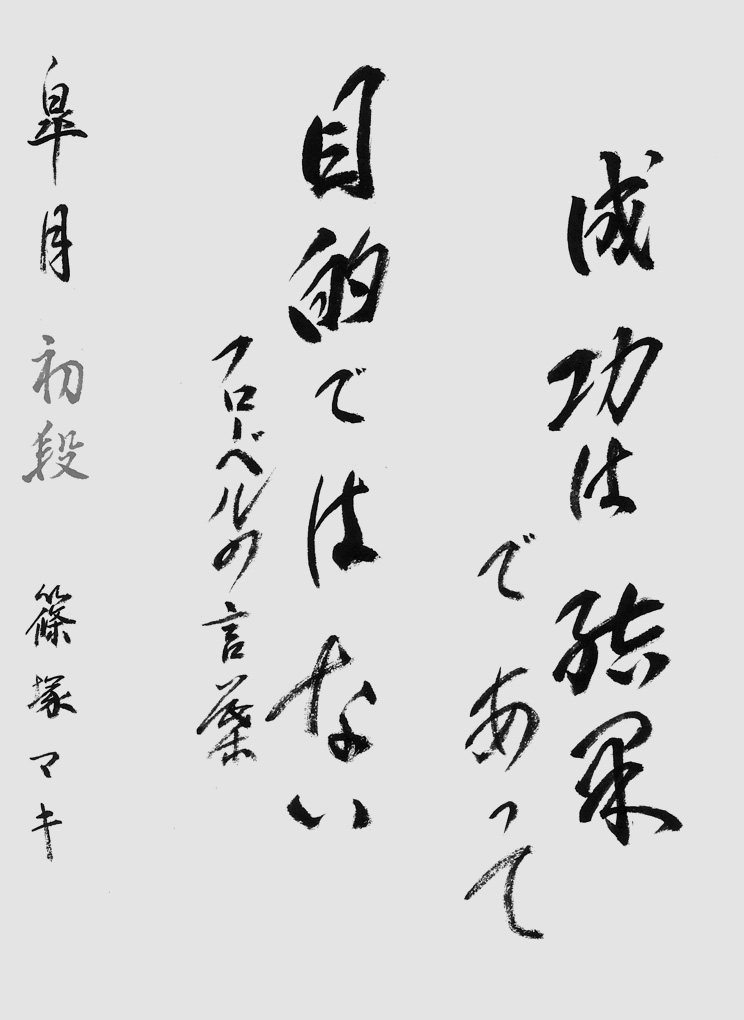 成功は結果
であって
目的ではない
フローベルの言葉
皐月 初段 篠塚マキ